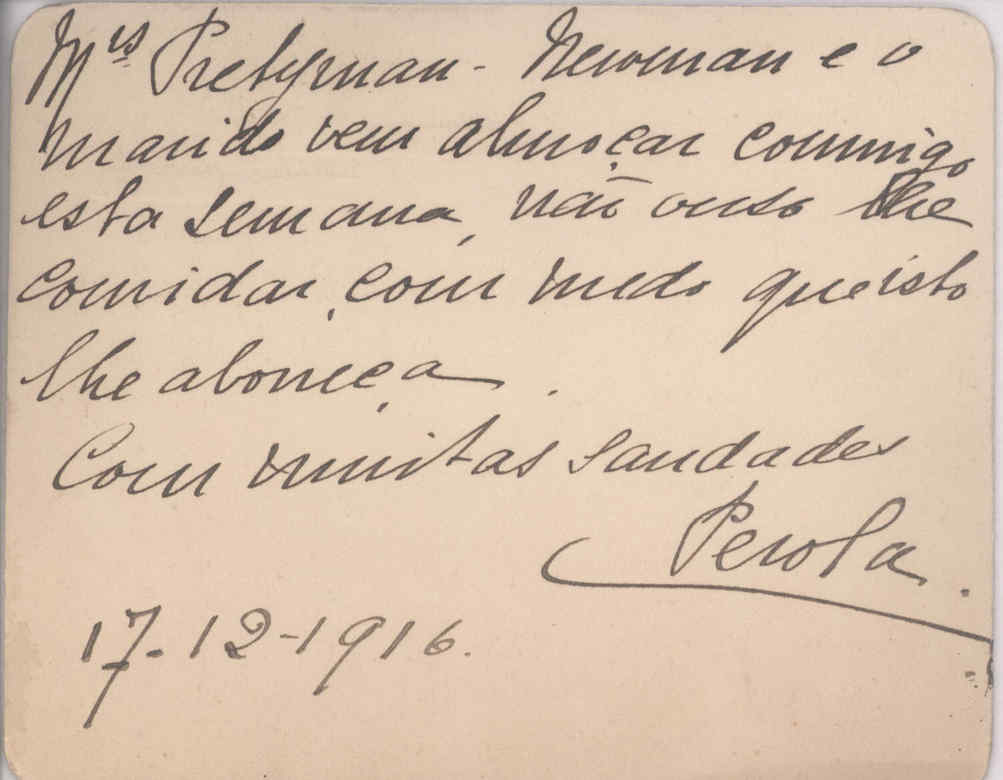 Mrs Pretyman - Newman e o
marido vem almoçar commigo
esta semana, não ouso lhe
convidar, com medo que isto
lhe aborreça.
Com muitas saudades
Perola.
17-12-1916.